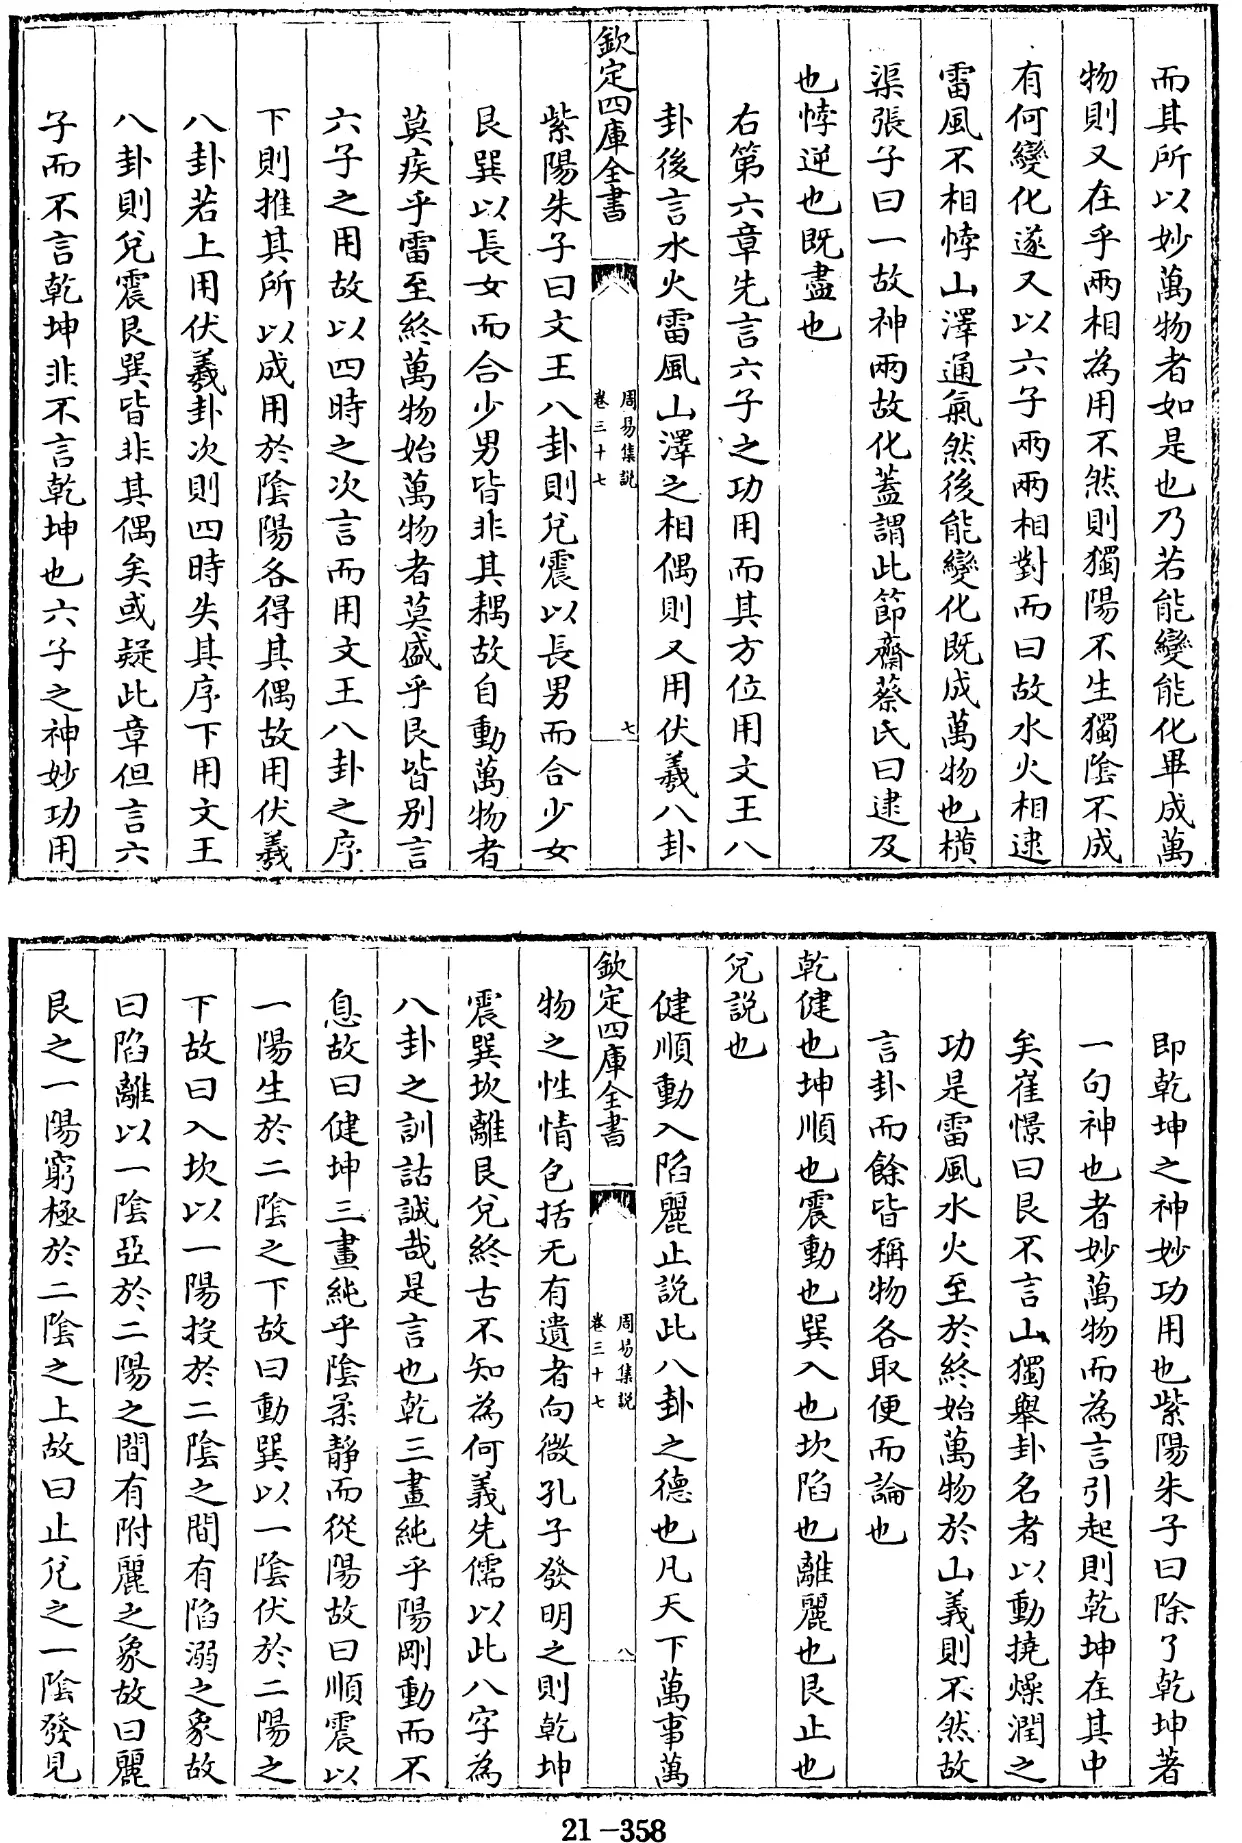 而其所以妙萬物者如是也乃若能變能化畢成萬
物則又在乎兩相為用不然則獨陽不生獨陰不成
有何變化遂又以六子兩兩相對而曰故水火相逮
雷風不相悖山澤通氣然後能變化既成萬物也橫
渠張子曰一故神兩故化蓋謂此節齋蔡氏曰逮及
也悖逆也既盡也
右第六章先言六子之功用而其方位用文王八
卦後言水火雷風山澤之相偶則又用伏羲八卦
欽定四庫全書
周易集說
卷三十七
七
紫陽朱子曰文王八卦則兌震以長男而合少女
艮巽以長女而合少男皆非其耦故自動萬物者
莫疾乎雷至終萬物始萬物者莫盛乎艮皆別言
六子之用故以四時之次言而用文王八卦之序
下則推其所以成用於陰陽各得其偶故用伏羲
八卦若上用伏羲卦次則四時失其序下用文王
八卦則兌震艮巽皆非其偶矣或疑此章但言六
子而不言乾坤非不言乾坤也六子之神妙功用
即乾坤之神妙功用也紫陽朱子曰除了乾坤著
一句神也者妙萬物而為言引起則乾坤在其中
矣崔憬曰艮不言山獨舉卦名者以動撓燥潤之
功是雷風水火至於終始萬物於山義則不然故
言卦而餘皆稱物各取便而論也
乾健也坤順也震動也巽入也坎陷也離麗也艮止也
兌說也
健順動入陷麗止說此八卦之德也凡天下萬事萬
欽定四庫全書
周易集說
卷三十七
八
物之性情包括无有遺者向微孔子發明之則乾坤
震巽坎離艮兌終古不知為何義先儒以此八字為
八卦之訓詁誠哉是言也乾三畫純乎陽剛動而不
息故曰健坤三畫純乎陰柔靜而從陽故曰順震以
一陽生於二陰之下故曰動巽以一陰伏於二陽之
下故曰入坎以一陽投於二陰之間有陷溺之象故
曰陷離以一陰亞於二陽之間有附麗之象故曰麗
艮之一陽窮極於二陰之上故曰止兌之一陰發見
21-358